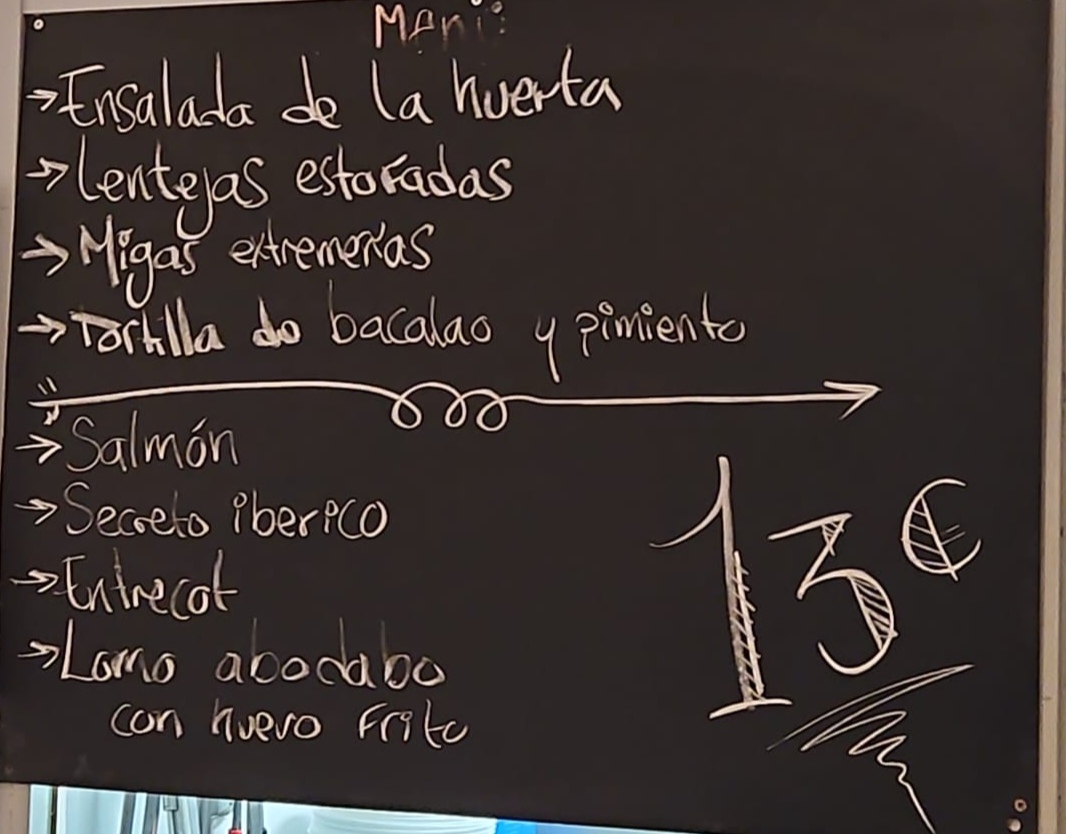 Menú:
→Ensalada de la huerta
→Lentejas estofadas
→Migas extremeñas
→Tortilla de bacalao y pimiento
→Salmón
→Secreto iberico
→Entrecot
→Lomo abodabo
con huevo frito
13€